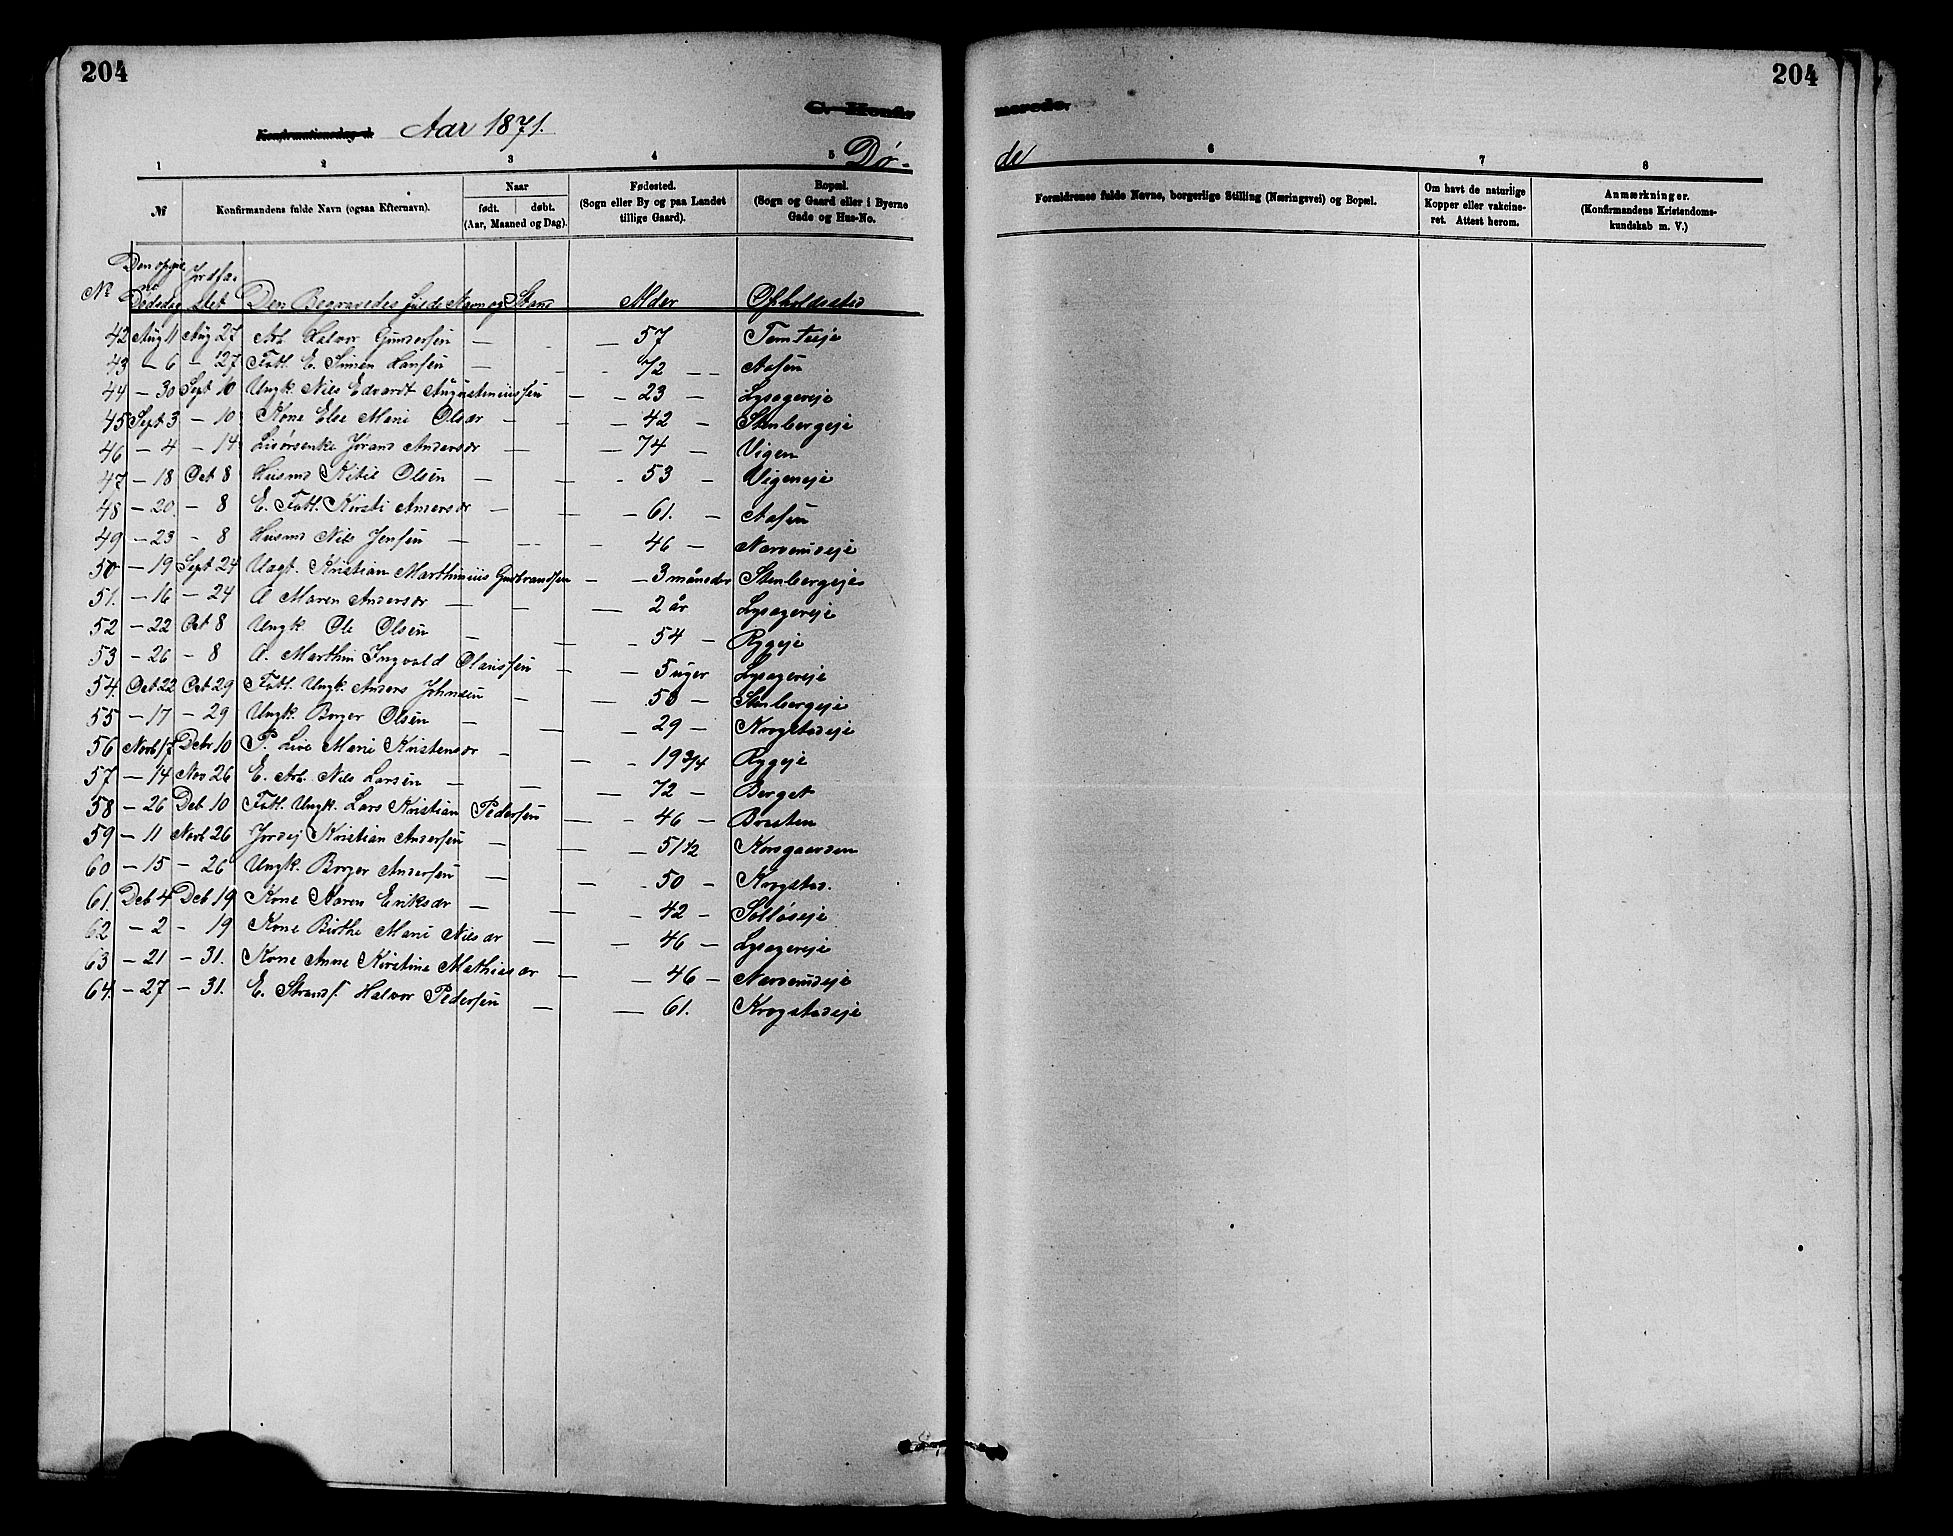 204 204
C. Konfir merede.
Konfirmationsdag d. Aar 1871.
Dø- de
1 2 3 4 5 6 7 8
№ Konfirmandens fulde Navn (ogsaa Efternavn). Naar født. døbt. (Aar, Maaned og Dag). Fødested. (Sogn eller By og paa Landet tillige Gaard). Bopæl. (Sogn og Gaard eller i Byerne Gade og Hus-No. Forældrenes fulde Navne, borgerlige Stilling (Næringsvei) og Bopæl. Om havt de naturlige Kopper eller vakcineret. Attest herom. Anmærkninger. (Konfirmandens Kristendomskundskab m. V.)
No Den opgivne Dødsdag Jordfæstet Den Begravedes fulde Navn og Stand Alder Opholdssted
42 Aug 11 Aug 27 Arb. Halvor Gundersen — — 57 Tomteeje
43 – 6 – 27 Fatt. E. Simen Hansen – – 72 – – Aasen
44 – 30 Sept 10 Ungk. Nils Edvardt Augustiniussen – – 23 – Lysagereje
45 Sept 3 – 10 Kone Else Marie Olsdr – – 42 – Stenbergeje
46 – 4 – 14 Jørand Andersdr – – 74 – Vigen
47 – 18 Oct 8 Husmd Kitil Olsen – – 53 – Vigeneje
48 – 20 – 8 E. Fatt. Kirsti Andersdr – – 61. – Aasen
49 – 23 – 8 Husmd Nils Jensen – – 46 – Narvemdeje
50 – 19 Sept 24 Uægt. Kristian Marthinius Gudbrandsen – – 3 måneder Stenbergeje
51. – 16 – 24 A Maren Andersdr – – 2 år Lysagereje
52 – 22 Oct 8 Ungk Ole Olsen – – 54 – Rygeje
53 – 26 – 8 A. Marthin Ingvald Olaussen – – 5 uger Lysagereje
54. Oct 22 Oct 29 Fatt. Ungk. Anders Johnsen – – 50 – Stenbergeje
55 – 17 – 29 Ungk. Borger Olsen – – 29 – Krogstadeje
56 Novb 17 Debr 10 P. Live Marie Kristensdr – – 19 3/4 Rygeje
57 – 14 Nov 26 E. Arb. Nils Larsen – – 72 – Berget
58 – 26 Deb 10 Fatt. Ungk. Lars Kristian Pedersen – – 46 – Braaten
59 – 11 Novb 26 Jordej Kristian Andersen – – 51 1/2 Korsgaarden
60 – 15 – 26 Ungk. Borger Andersen – – 50 – Krogstad.
61. Deb 4 Deb 19 Kone Karen Eriksdr – – 42 – Solløseje
62 – 2 – 19 Kone Birthe Marie Nilsdr – – 46 – Lysagereje
63 – 21 – 31. Kone Anne Kirstine Mathiasdr – – 46 – Narvemdeje
64. – 27 – 31. E. Strands. Halvor Pedersen – – 61. Krogstadeje